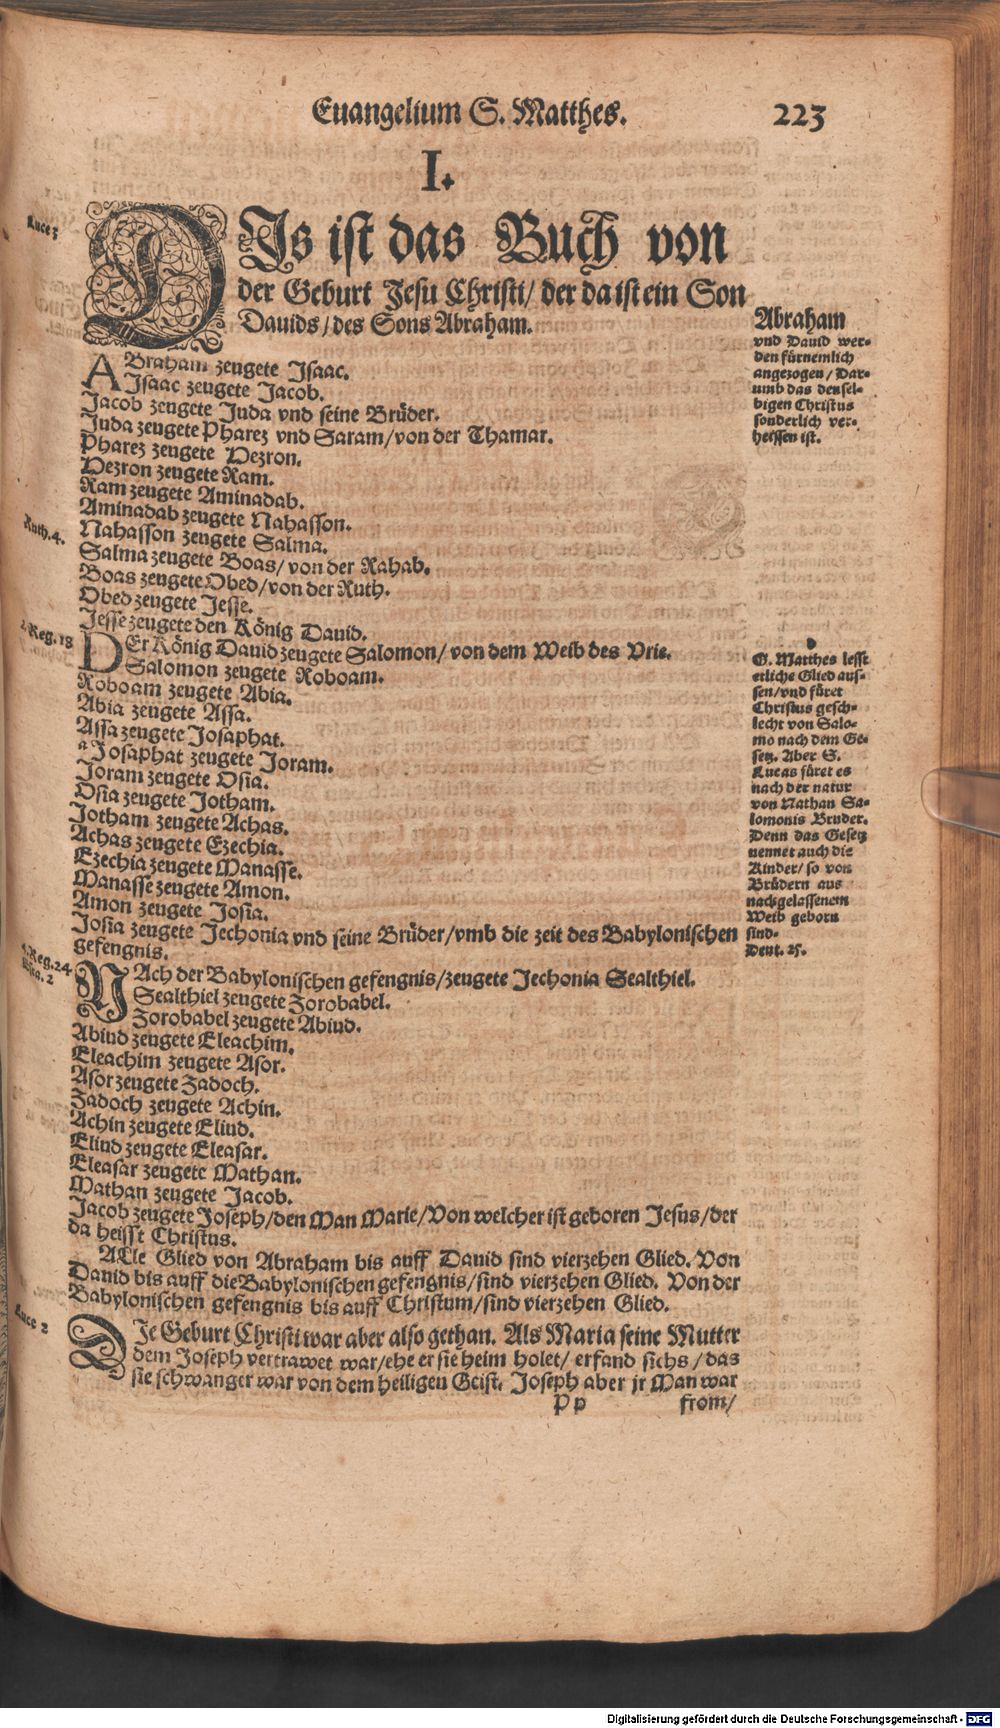 Euangelium S. Matthes. 223
I.
Luce 3
DIs ist das Buch von
der Geburt Jesu Christi/ der da ist ein Son
Dauids/ des Sons Abraham.
ABraham zeugete Isaac.
Isaac zeugete Jacob.
Jacob zeugete Juda vnd seine Brüder.
Juda zeugete Pharez vnd Saram/ von der Thamar.
Pharez zeugete Hezron.
Hezron zeugete Ram.
Ram zeugete Aminadab.
Aminadab zeugete Nahasson.
Ruth. 4.
Nahasson zeugete Salma.
Salma zeugete Boas/ von der Rahab.
Boas zeugete Obed/ von der Ruth.
Obed zeugete Jesse.
Jesse zeugete den König Dauid.
2. Reg. 18
DEr König Dauid zeugete Salomon/ von dem Weib des Vrie.
Salomon zeugete Roboam.
Roboam zeugete Abia.
Abia zeugete Assa.
Assa zeugete Josaphat.
a Josaphat zeugete Joram.
Joram zeugete Osia.
Osia zeugete Jotham.
Jotham zeugete Achas.
Achas zeugete Ezechia.
Ezechia zeugete Manasse.
Manasse zeugete Amon.
Amon zeugete Josia.
Josia zeugete Jechonia vnd seine Brüder/ vmb die zeit des Babylonischen
gefengnis.
4. Reg. 24
NAch der Babylonischen gefengnis/ zeugete Jechonia Sealthiel.
Sealthiel zeugete Zorobabel.
Zorobabel zeugete Abiud.
Abiud zeugete Eleachim.
Eleachim zeugete Asor.
Asor zeugete Zadoch.
Zadoch zeugete Achin.
Achin zeugete Eliud.
Eliud zeugete Eleasar.
Eleasar zeugete Mathan.
Mathan zeugete Jacob.
Jacob zeugete Joseph/ den Man Marie/ Von welcher ist geboren Jesus/ der
da heisst Christus.
ALle Glied von Abraham bis auff Dauid sind vierzehen Glied. Von
Dauid bis auff die Babylonischen gefengnis/ sind vierzehen Glied. Von der
Babylonischen gefengnis bis auff Christum/ sind vierzehen Glied.
Luce 2
DIe Geburt Christi war aber also gethan. Als Maria seine Mutter
dem Joseph vertrawet war/ ehe er sie heim holet/ erfand sichs/ das
sie schwanger war von dem heiligen Geist. Joseph aber jr Man war
Pp from/
Abraham
vnd Dauid wer-
den fürnemlich
angezogen/ Dar-
umb das densel-
bigen Christus
sonderlich ver-
heissen ist.
S. Matthes lesst
etliche Glied aus-
sen/ vnd füret
Christus gesch-
lecht von Salo-
mo nach dem Ge-
setz. Aber S.
Lucas füret es
nach der natur
von Nathan Sa-
lomonis Bruder.
Denn das Gesetz
nennet auch die
Kinder/ so von
Brüdern aus
nachgelassenem
Weib geborn
sind.
Deut. 25.
Digitalisierung gefördert durch die Deutsche Forschungsgemeinschaft - DFG